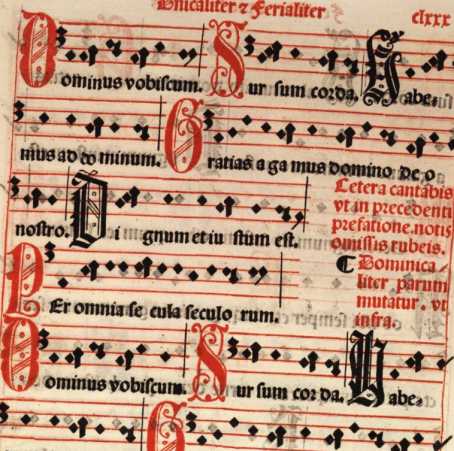 Dñicaliter ⁊ Ferialiter clxxx
Dominus vobiscum. Sur sum corda. Habe-
mus ad do minum. Gratias a ga mus domino de o
nostro. Di gnum et iu stum est.
Cetera cantabis
vt in precedenti
prefatione. notis
omissis rubeis.
¶ Dominica-
liter parum
mutatur. vt
infra.
PEr omnia se cula seculo rum.
Dominus vobiscum. Sur sum cor da. Habe-
G